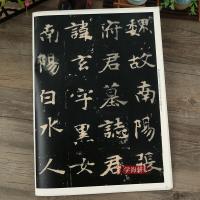 魏故南陽張
府君墓誌君
諱玄字黑女
南陽白水人
学海轩